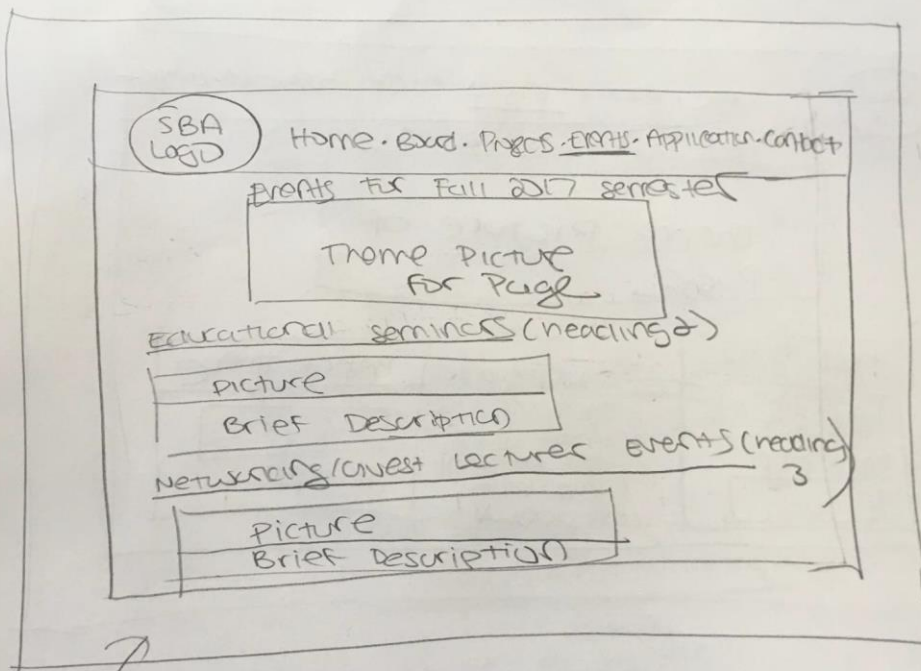 SBA
LOGO
Home · Board · Projects · Events · Application · Contact
Events for Fall 2017 semester
Theme Picture
For Page
Educational seminars (heading 2)
Picture
Brief Description
Networking/Guest Lectures events (heading
3)
Picture
Brief Description